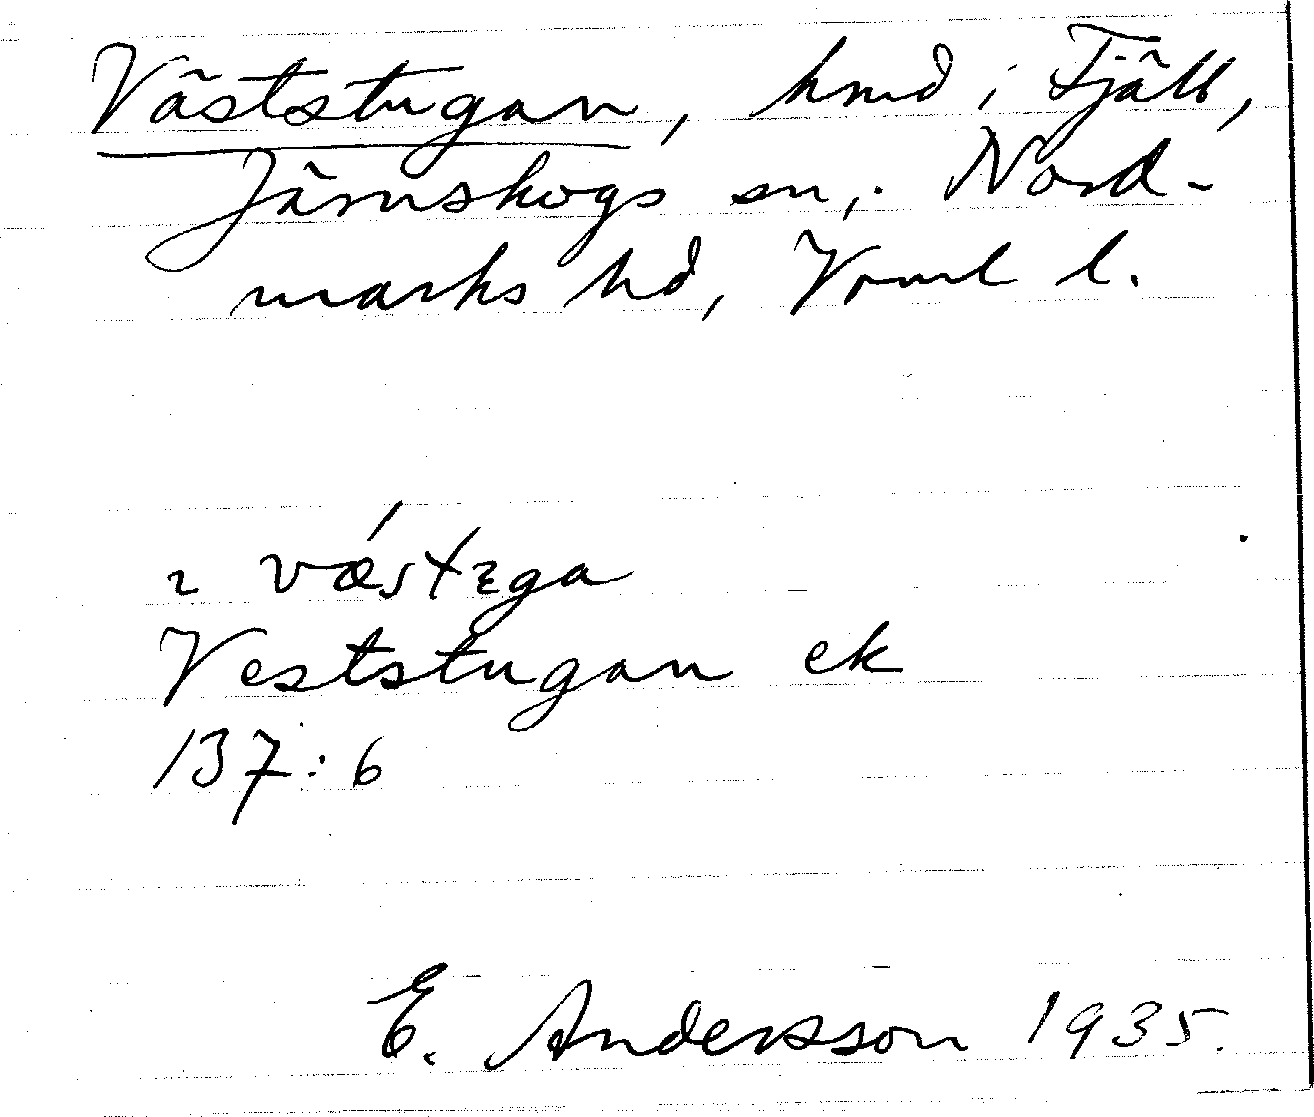 Väststugan, hmd i Fjäll,
Järnskogs sn, Nord-
marks hd, Vrml l.
Veststugan ek
137:6
E. Andersson 1935.